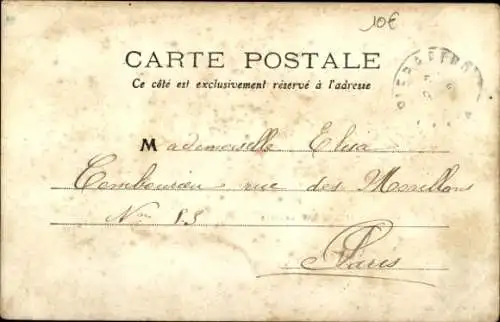 10€
CARTE POSTALE
Ce côté est exclusivement réservé à l'adresse
Mademoiselle Elisa
rue des Morillons
Nro 83
Paris